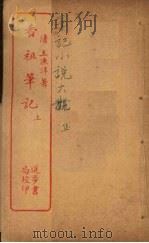 記小说大觀
清 王漁洋著
香祖筆記 上
進步書
局校印